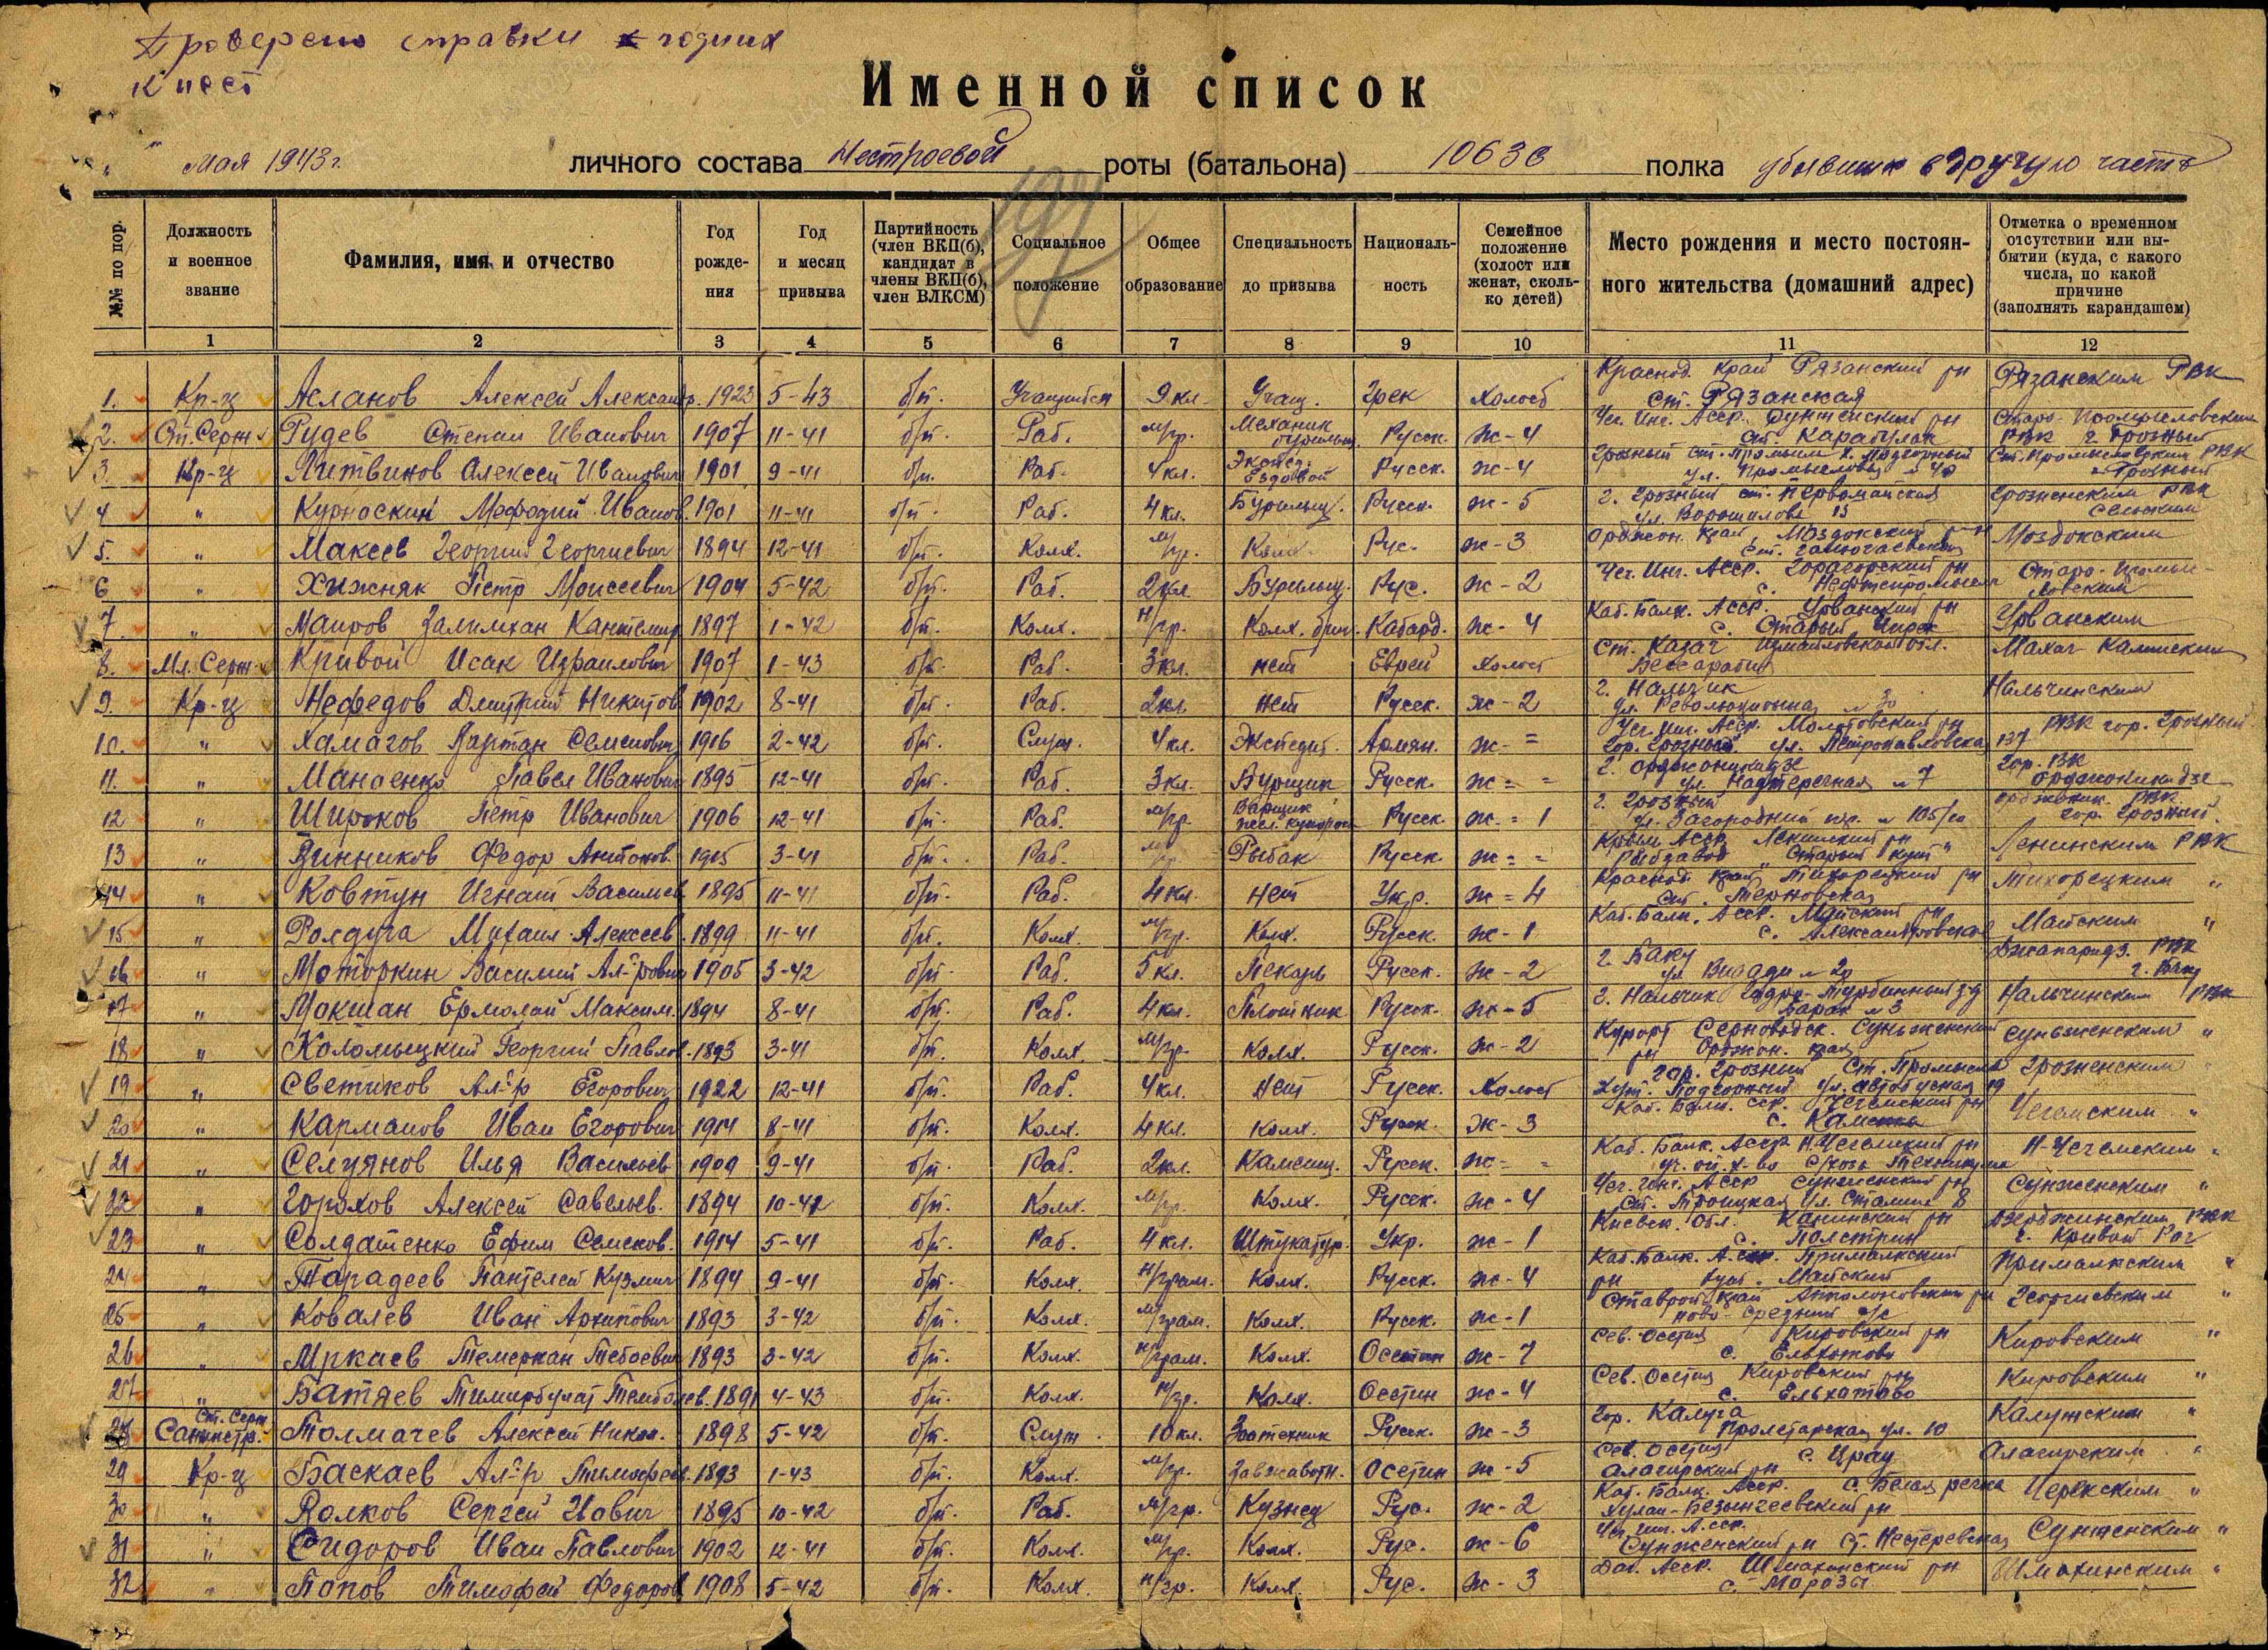 Проверено справки годних
к нест
Именной список
" " мая 1943 г. личного состава Нестроевой роты (батальона) 1063 полка убывших в другую часть
197
№№ по пор. Должность и военное звание Фамилия, имя и отчество Год рождения Год и месяц призыва Партийность (член ВКП(б), кандидат в члены ВКП(б), член ВЛКСМ) Социальное положение Общее образование Специальность до призыва Национальность Семейное положение (холост или женат, сколько детей) Место рождения и место постоянного жительства (домашний адрес) Отметка о временном отсутствии или выбытии (куда, с какого числа, по какой причине (заполнять карандашем)
1 2 3 4 5 6 7 8 9 10 11 12
1. Кр-ц Асланов Алексей Александр. 1923 5-43 б/п. Учащийся 9 кл. Учащ. Грек Холост Краснод. край Рязанский рн ст. Рязанская Рязанским РВК
2. Ст. Серж. Рудев Степан Иванович 1907 11-41 б/п. Раб. м/гр. Механик Русск. ж-4 Чеч. Инг. Асср. Сунженский рн ст. Карабулак Старо-Промысловским РВК г. Грозный
3. Кр-ц Литвинов Алексей Иванович 1901 9-41 б/п. Раб. 4 кл. Ездовой Русск. ж-4 Грозный ст. Промысл. х. Подгорный ул. Промысловая № 40 Ст. Промысловским РВК г. Грозный
4 " Курноскин Мефодий Иванов. 1901 11-41 б/п. Раб. 4 кл. Бурильщ. Русск. ж-5 г. Грозный ст. Первомайская ул. Ворошилова 13 Грозненским РВК сельским
5. " Макеев Георгий Георгиевич 1894 12-41 б/п. Колх. м/гр. Колх. Рус. ж-3 Орджон. край, Моздокский р-н ст. Галюгаевская Моздокским
6 " Хижняк Петр Моисеевич 1904 5-42 б/п. Раб. 2 кл. Бурильщ. Рус. ж-2 Чеч. Инг. Асср. Горагорский рн с. Нефтепромысл Старо-Промысловским
7. " Маиров Залимхан Кантемир. 1897 1-42 б/п. Колх. н/гр. Колх. бриг. Кабард. ж-4 Каб. Балк. Асср. Урванский рн с. Старый Черек Урванским
8. Мл. Серж. Кривой Исак Израилович 1907 1-43 б/п. Раб. 3 кл. нет Еврей Холост Ст. Казач Измаиловской обл. Бессарабия Махач-Калинским
9. Кр-ц Нефедов Дмитрий Никитов 1902 8-41 б/п. Раб. 2 кл. нет Русск. ж-2 г. Нальчик ул. Революционная № 30 Нальчинским
10. " Хамагов Вартан Семенович 1916 2-42 б/п. Служ. 4 кл. Экспедит. Армян. ж- = Чеч. Инг. Асср. Молотовский рн гор. Грозный ул. Петропавловская 137 РВК гор. Грозный
11. " Манаенко Павел Иванович 1895 12-41 б/п. Раб. 3 кл. Бурщик Русск. ж = - г. Орджоникидзе ул. Надтеречная № 7 Гор. ВК Орджоникидзе
12 " Широков Петр Иванович 1906 12-41 б/п. Раб. м/гр. Варщик Русск. ж = 1 г. Грозный ул. Загородний пер. № 105/10 РВК гор. Грозный.
13 " Винников Федор Антонов. 1905 3-41 б/п. Раб. м/гр. Рыбак Русск. ж = - Крым. Асср. Ленинский рн Рыбзавод Старый Ленинским РВК
14 " Ковтун Игнат Васильев 1895 11-41 б/п. Раб. 4 кл. нет Укр. ж = 4 Краснод. край Тихорецкий рн ст. Терновская Тихорецким "
15 " Ролдуга Михаил Алексеев. 1899 11-41 б/п. Колх. м/гр. Колх. Русск. ж-1 Каб. Балк. Асср. Майский рн с. Александровское Майским "
16 " Моторкин Василий Ал-рович 1905 3-42 б/п. Раб. 5 кл. Пекарь Русск. ж-2 г. Баку ул. Видади № 20 Джапаридз. РВК г. Баку
17 " Мокшан Ермолай Максим. 1894 8-41 б/п. Раб. 4 кл. Плотник Русск. ж-5 г. Нальчик Гидро-Турбинный з-д Барак № 3 Нальчинским РВК
18 " Коломыцкий Георгий Павлов. 1893 3-41 б/п. Колх. м/гр. Колх. Русск. ж-2 Курорт Серноводск. Сунженский рн Орджон. края Сунженским "
19 " Светиков Ал-р Егорович 1922 12-41 б/п. Раб. 4 кл. Нет Русск. Холост гор. Грозный Ст. Промысла Хут. Подгорный ул. Автобусная 19 Грозненским "
20 " Карманов Иван Егорович 1914 8-41 б/п. Колх. 4 кл. Колх. Русск. ж-3 Каб. Балк. сср. Чегемский рн с. Каменка Чегемским "
21 " Селуянов Илья Васильев 1909 9-41 б/п. Раб. 2 кл. Каменщ. Русск. ж = - Каб. Балк. Асср. Н. Чегемский рн уч. оп. х-во с/хоз Техникума Н-Чегемским "
22 " Горохов Алексей Савельев. 1894 10-42 б/п. Колх. м/гр. Колх. Русск. ж-4 Чеч. Инг. Асср Сунженский рн ст. Троицкая ул. Сталина 8 Сунженским "
23 " Солдатенко Ефим Семенов. 1914 5-41 б/п. Раб. 4 кл. Штукатур. Укр. ж-1 Киевск. обл. Каневский рн с. Полстрин Дзержинским РВК г. Кривой Рог
24 " Тарадеев Пантелей Кузмич 1894 9-41 б/п. Колх. н/грам. Колх. Русск. ж-4 Каб. Балк. Асср. Прималкский рн хут. Майский Прималкским "
25 " Ковалев Иван Архипович 1893 3-42 б/п. Колх. м/грам. Колх. Русск. ж-1 Ставроп. край Апполоновский рн Ново Средний с/с Георгиевским "
26 " Мркаев Темеркан Тебоевич 1893 3-42 б/п. Колх. н/грам. Колх. Осетин ж-7 Сев. Осетия Кировский рн с. Ельхотово Кировским "
27 " Батяев Тимирбулат Темболов. 1891 4-43 б/п. Колх. н/гр. Колх. Осетин ж-4 Сев. Осетия Кировский рн с. Ельхатово Кировским "
28 Ст. Серж. Санинстр. Толмачев Алексей Никол. 1898 5-42 б/п. Служ. 10 кл. Зоотехник Русск. ж-3 гор. Калуга Пролетарская ул. 10 Калужским "
29 Кр-ц Баскаев Ал-р Тимофеев. 1893 1-43 б/п. Колх. м/гр. Завживотн. Осетин ж-5 Сев. Осетия с. Црау Алагирский рн Алагирским "
30 " Волков Сергей Иович 1895 10-42 б/п. Раб. м/гр. Кузнец Рус. ж-2 Каб. Балк. Асср. с. Белая речка Хулан-Безынгеевский рн Черекским "
31 " Сидоров Иван Павлович 1902 12-41 б/п. Колх. м/гр. Колх. Рус. ж-6 Чеч. Инг. Асср. Сунженский рн Ст. Нестеревская Сунженским "
32 " Попов Тимофей Федоров 1908 5-42 б/п. Колх. н/гр. Колх. Рус. ж-3 Даг. Асср. Шмахинский рн с. Морозы Шмахинским "